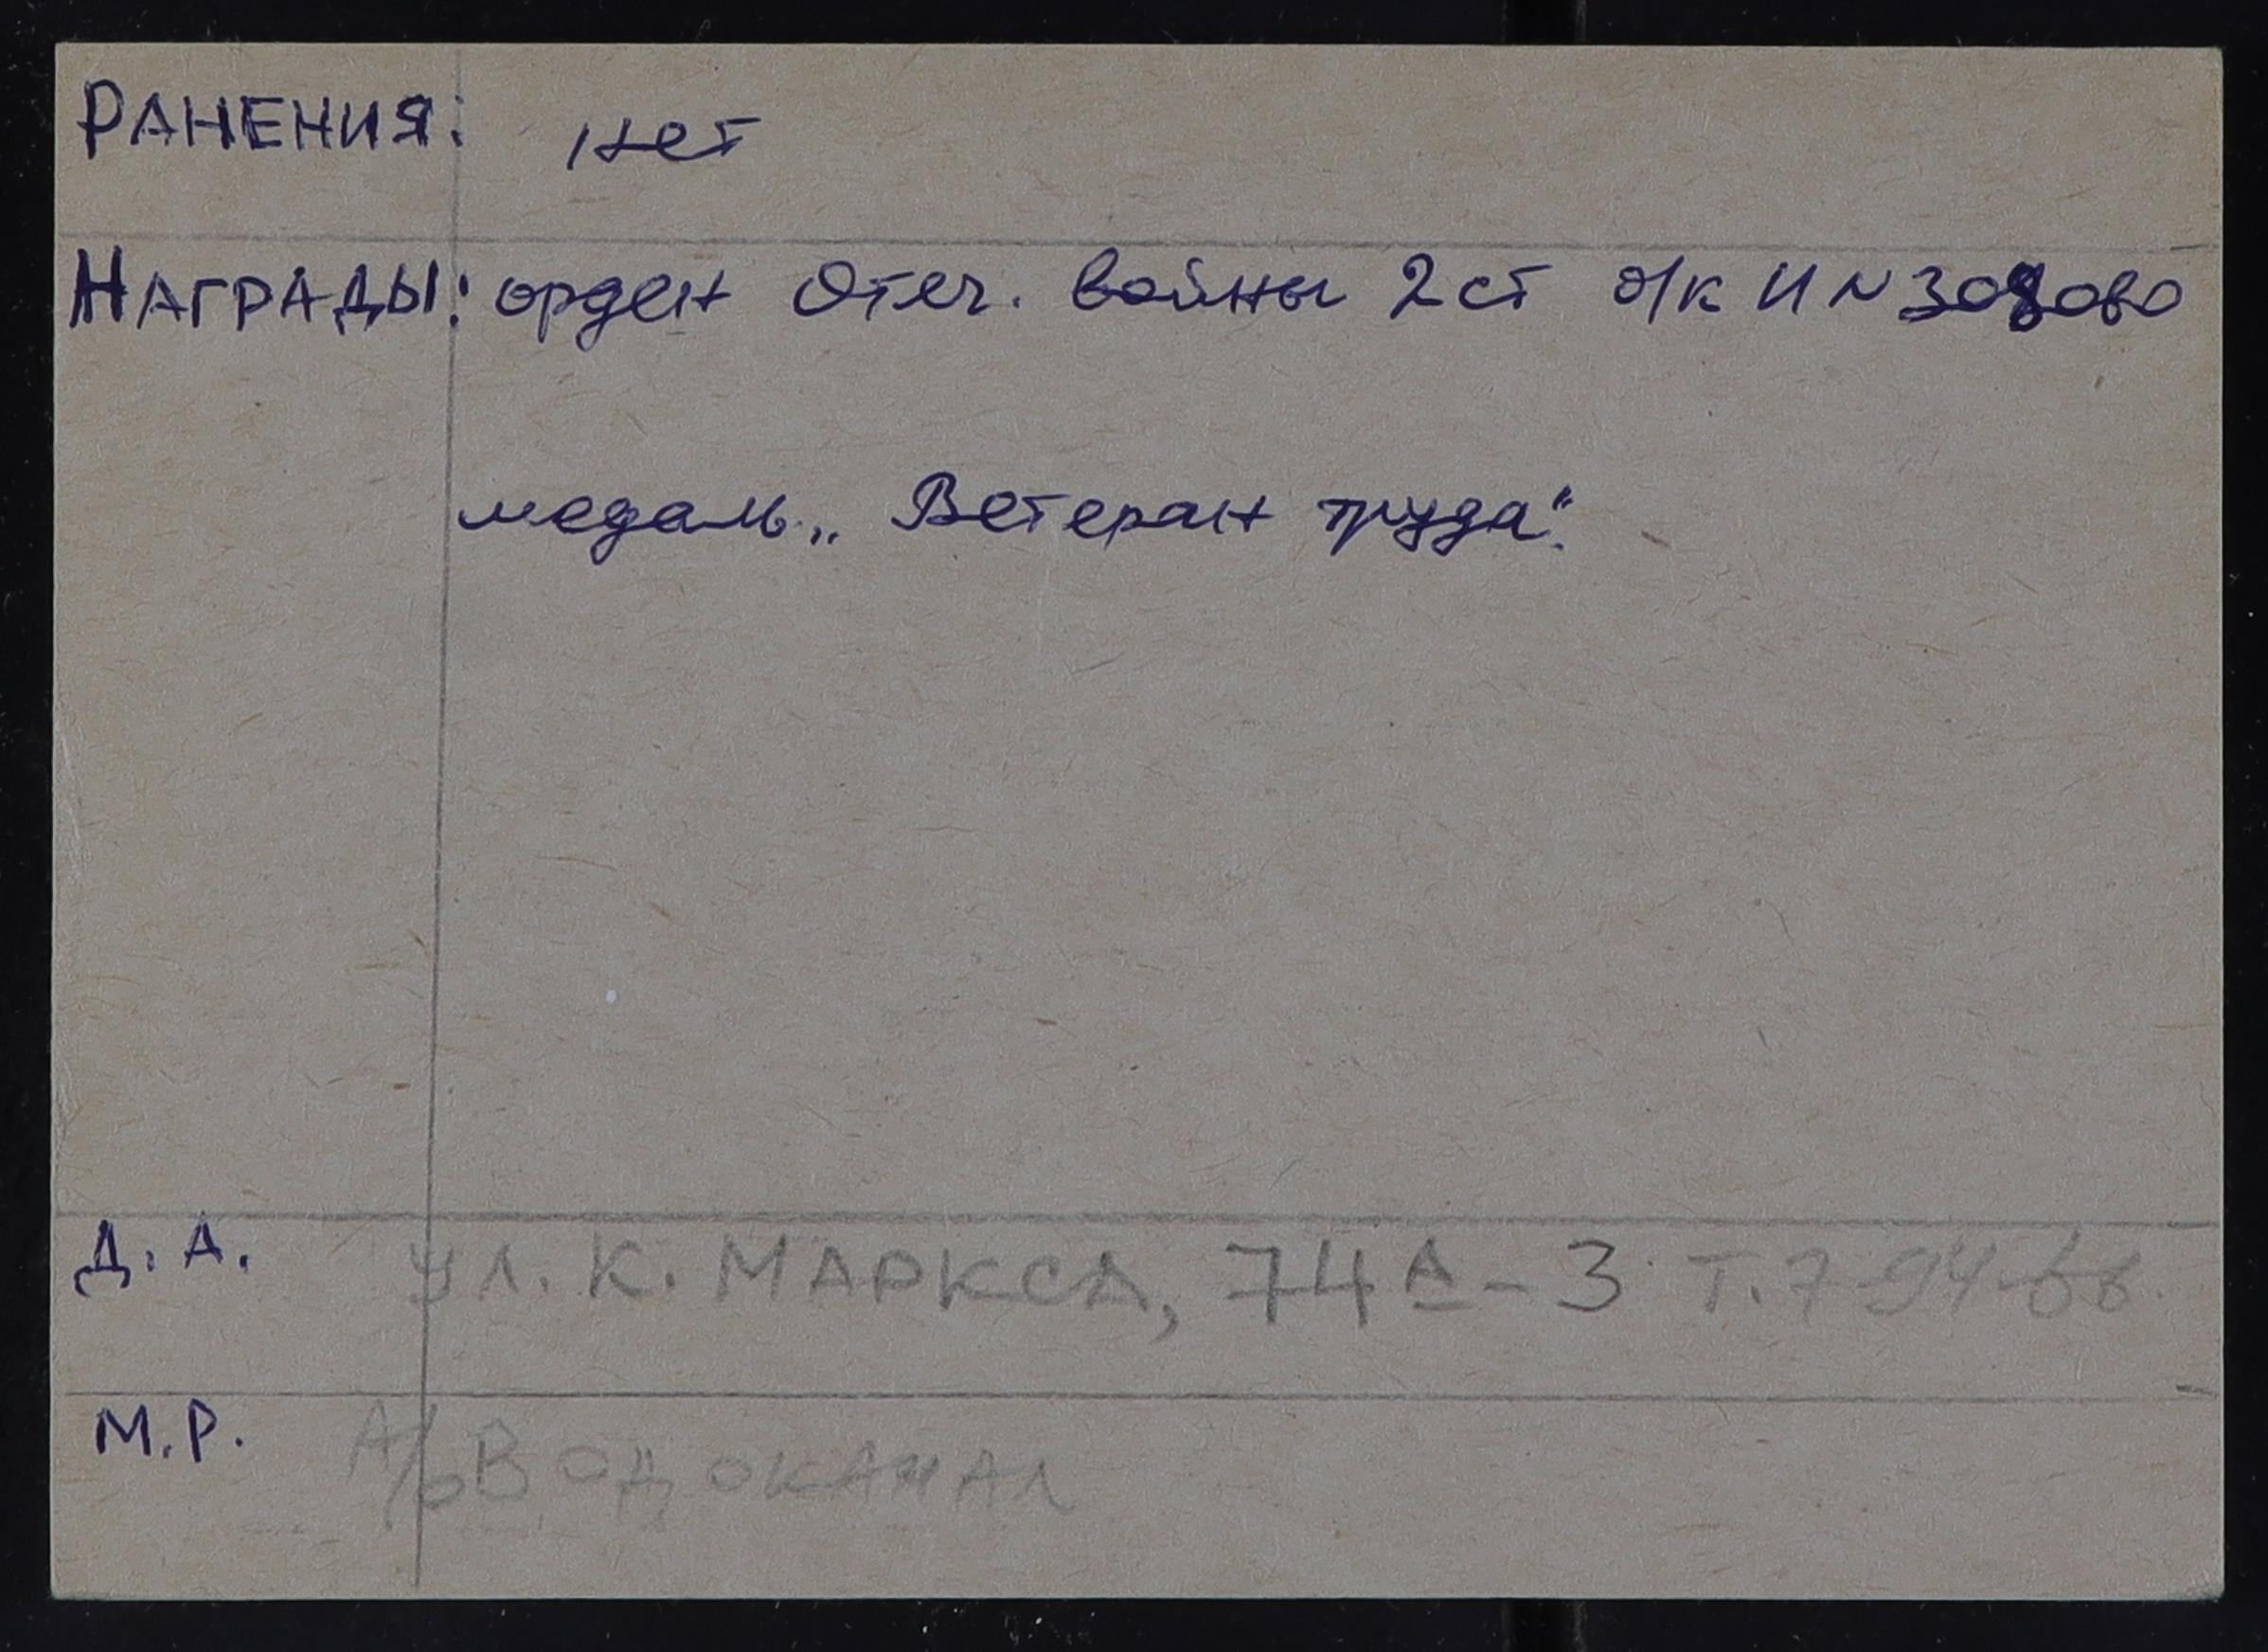 РАНЕНИЯ: нет
НАГРАДЫ: орден Отеч. войны 2 ст о/к И N 308060
медаль „Ветеран труда".
Д. А. ул. К. МАРКСА, 74А-3 Т. 7-94-66.
М.Р. А/о ВОДОКАНАЛ